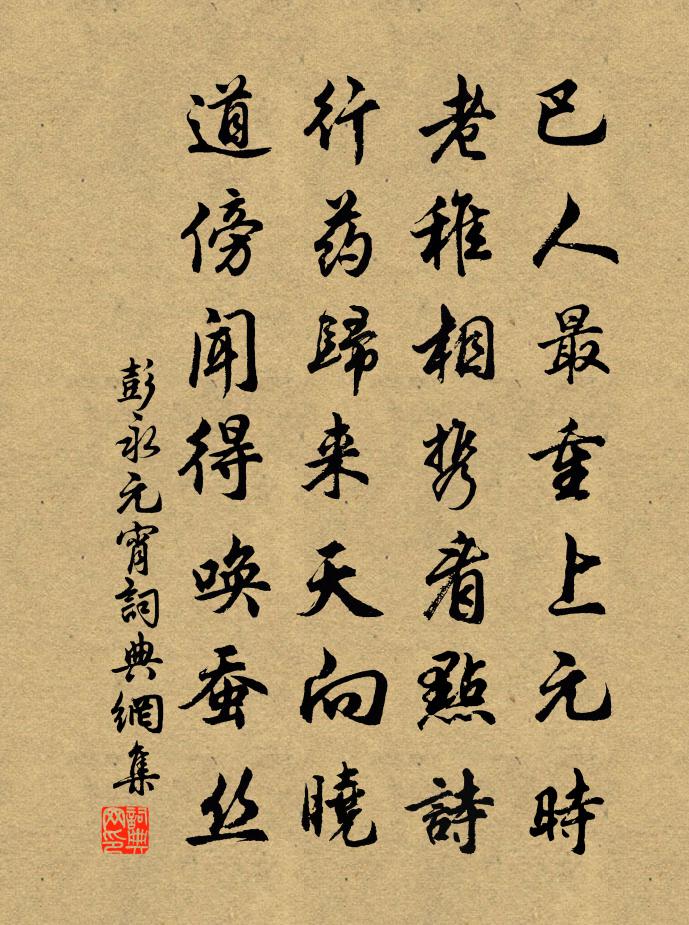 巴人最重上元時
老稚相携看點詩
行药歸来天向曉
道傍聞得唤蚕丝
彭永元宵詞典網集
詞典网印